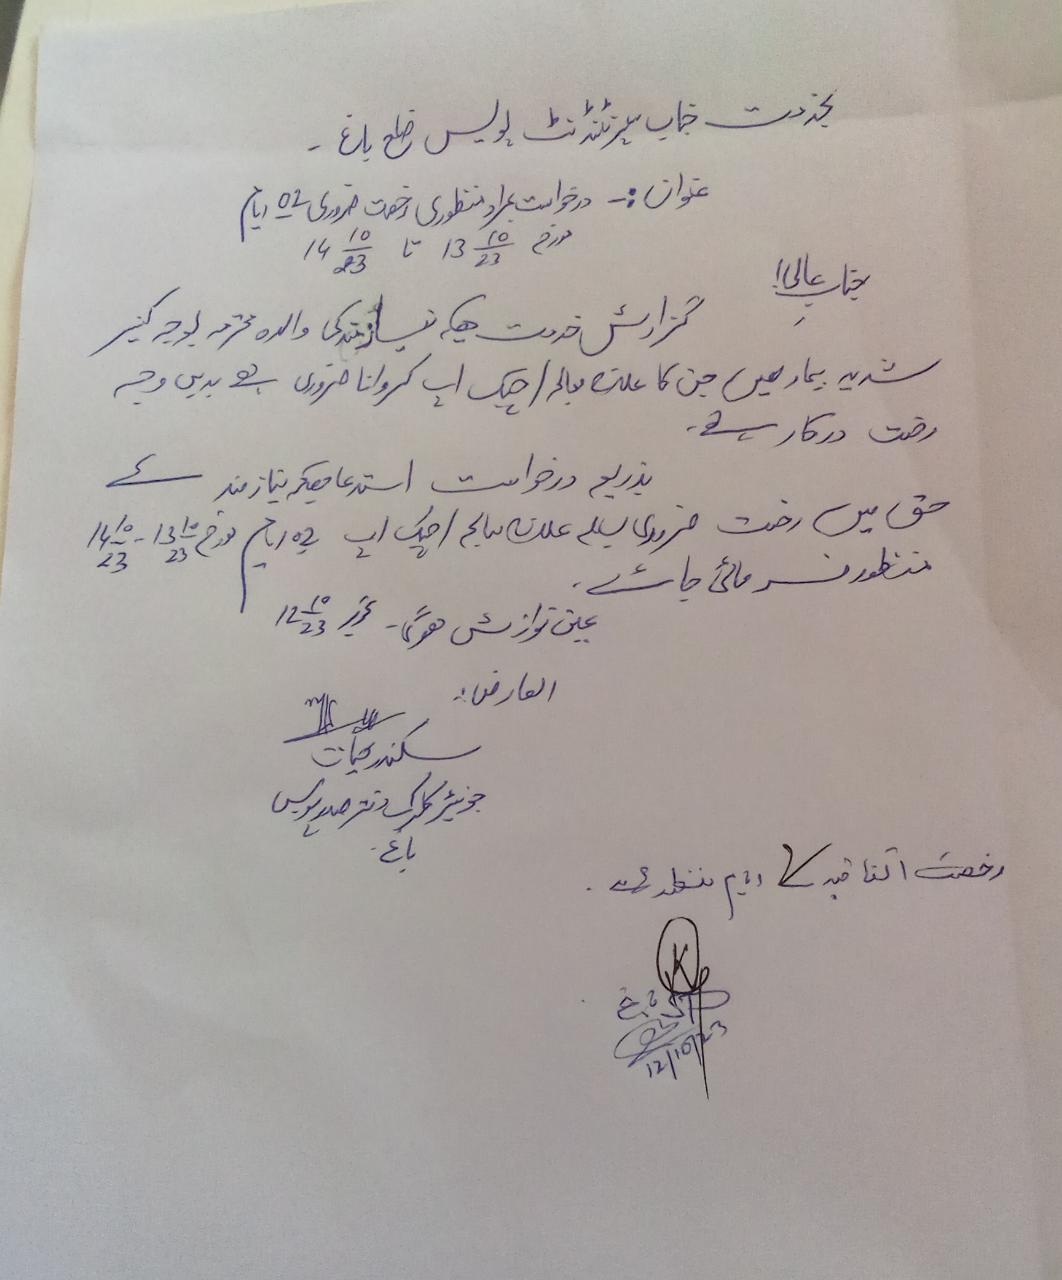 بخدمت جناب سپرنٹنڈنٹ پولیس ضلع باغ ۔
عنوان :۔ درخواست بمراد منظوری رخصت ضروری 02 ایام
مورخہ 13 10/23 تا 14 10/23
جناب عالی!
گزارش خدمت ہیکہ نیازمند کی والدہ محترمہ بوجہ کینسر
شدید بیمار ہیں جن کا علاج معالجہ / چیک اپ کروانا ضروری ہے بدیں وجہ
رخصت درکار ہے ۔
بذریعہ درخواست استدعا ہیکہ نیازمند کے
حق میں رخصت ضروری بسلسلہ علاج معالجہ / چیک اپ 02 ایام مورخہ 13 10/23 - 14 10/23
منظور فرمائی جائے ۔
عین نوازش ہوگی ۔ تحریر 12 10/23
العارض :
سکندر حیات
جونیئر کلرک دفتر صدر پولیس
باغ
رخصت اتفاقیہ کے دو یوم منظور ہے ۔
K
SP باغ
12/10/23